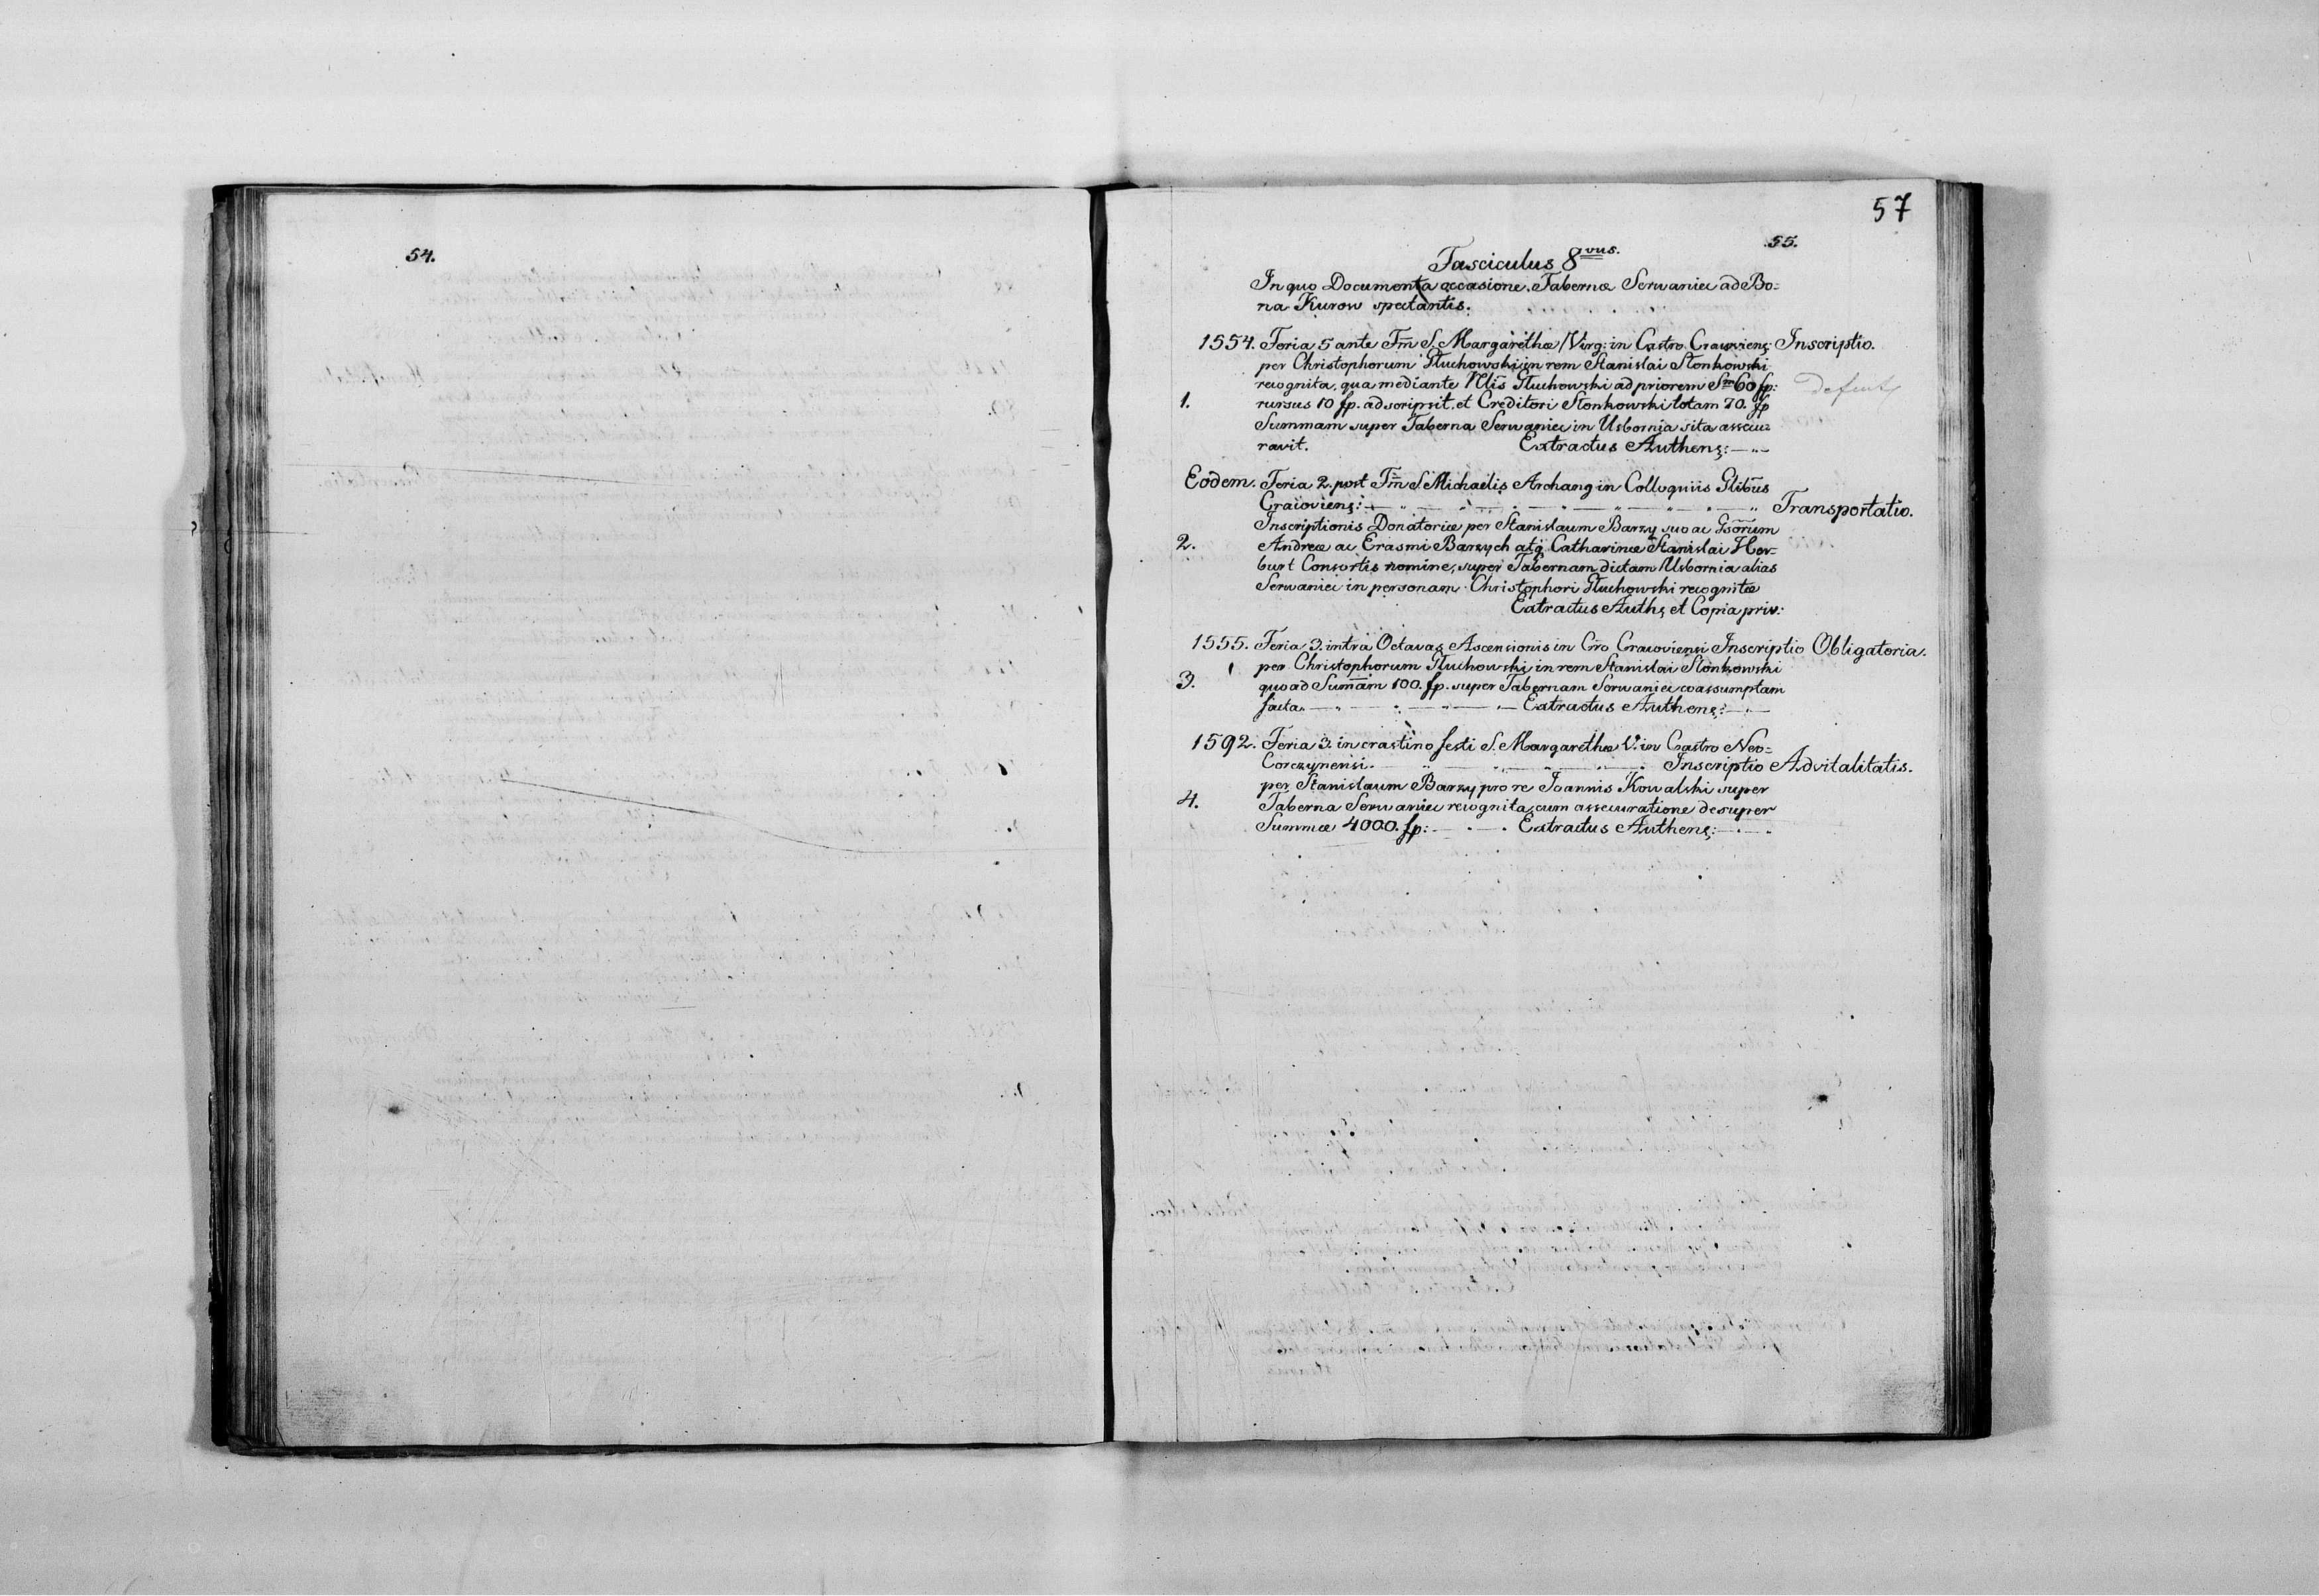 54.
57
55.
Fasciculus 8vus.
In quo Documenta occasione Tabernæ Serwaniec ad Bo=
na Kurow spectantis.
1554. Feria 5 ante Fm̄ S. Margarethæ Virg: in Castro Cracoviens: Inscriptio.
per Christophorum Głuchowski in rem Stanislai Słonkowski
recognita, qua mediante Nlis Głuchowski ad priorem Sm̄ 60 fp: defect
1. rursus 10 fp. adscripsit. et Creditori Słonkowski totam 70. fp
Summam super Taberna Serwaniec in Usbornia sita assecu=
ravit. Extractus Authens: — „ —
Eodem. Feria 2. post Fm̄ S Michaelis Archang in Colloquiis Glibus
Cracoviens: — „ — Transportatio.
Inscriptionis Donatoriæ per Stanislaum Barzy suo ac Gsorum
2. Andreæ ac Erasmi Barzych atq Catharinæ Stanislai Her=
burt Consortis nomine, super Tabernam dictam Usbornia alias
Serwaniec in personam Christophori Głuchowski recognitæ
Extractus Auths et Copia priv:
1555. Feria 3. intra Octavas Ascensionis in Cro Cracoviensi Inscriptio Obligatoria.
per Christophorum Głuchowski in rem Stanislai Słonkowski
3. quoad Summam 100. fp. super Tabernam Serwaniec coassumptam
facta. — „ — Extractus Authens: — „ —
1592. Feria 3. in crastino festi S. Margarethæ V. in Castro Neo=
Corczynensi. — „ — Inscriptio Advitalitatis.
per Stanislaum Barzy pro re Joannis Kowalski super
4. Taberna Serwaniec recognita, cum assecuratione desuper
Summæ 4000. fp: — . — . Extractus Authens: — . — .